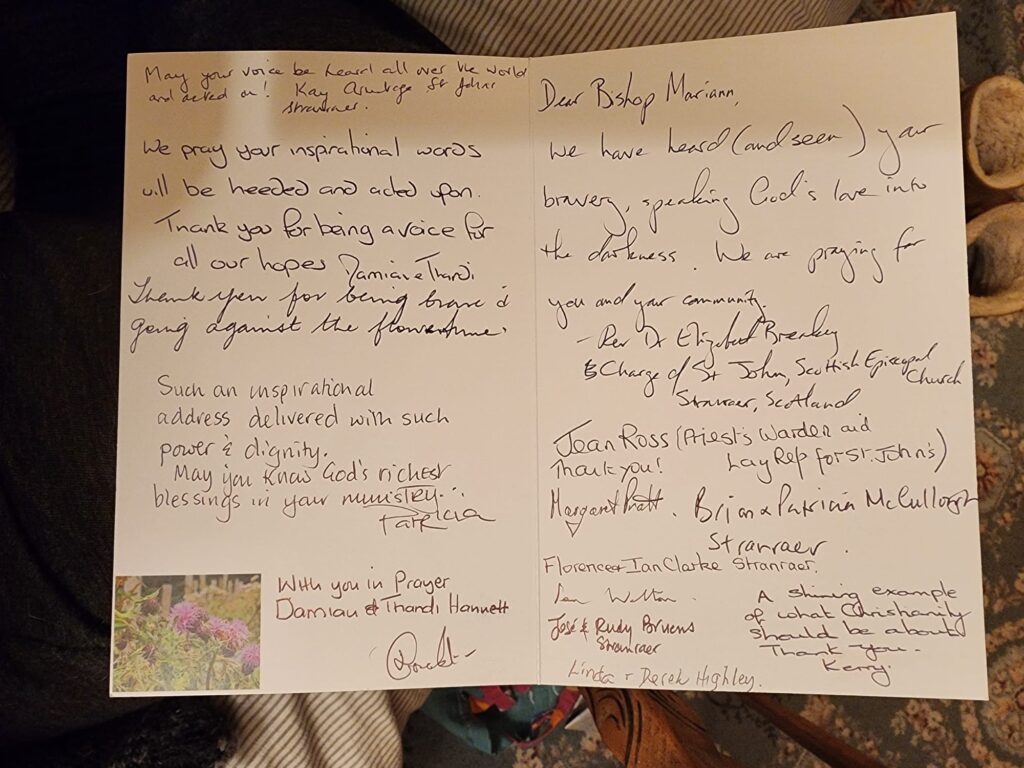 May your voice be heard all over the world
and acted on! Kay Armitage St Johns
Stranraer.
We pray your inspirational words
will be heeded and acted upon.
Thank you for being a voice for
all our hopes Damian & Thandi
Thank you for being brave &
going against the
Such an inspirational
address delivered with such
power & dignity.
May you know God's richest
blessings in your ministry.
Patricia
With you in Prayer
Damian & Thandi Hannett
Dear Bishop Mariann,
We have heard (and seen) your
bravery, speaking God's love into
the darkness. We are praying for
you and your community.
- Rev Dr Elizabeth Breakey
Charge of St John, Scottish Episcopal
Church
Stranraer, Scotland
Jean Ross (Priest's Warden and
Thank you! Lay Rep for St. John's)
Margaret Pratt. Brian & Patricia McCullough
Stranraer.
Florence & Ian Clarke Stranraer.
José & Rudy Bruens
Stranraer
Linda & Derek Highley.
A shining example
of what Christianity
should be about
Thank you.
Kerry.